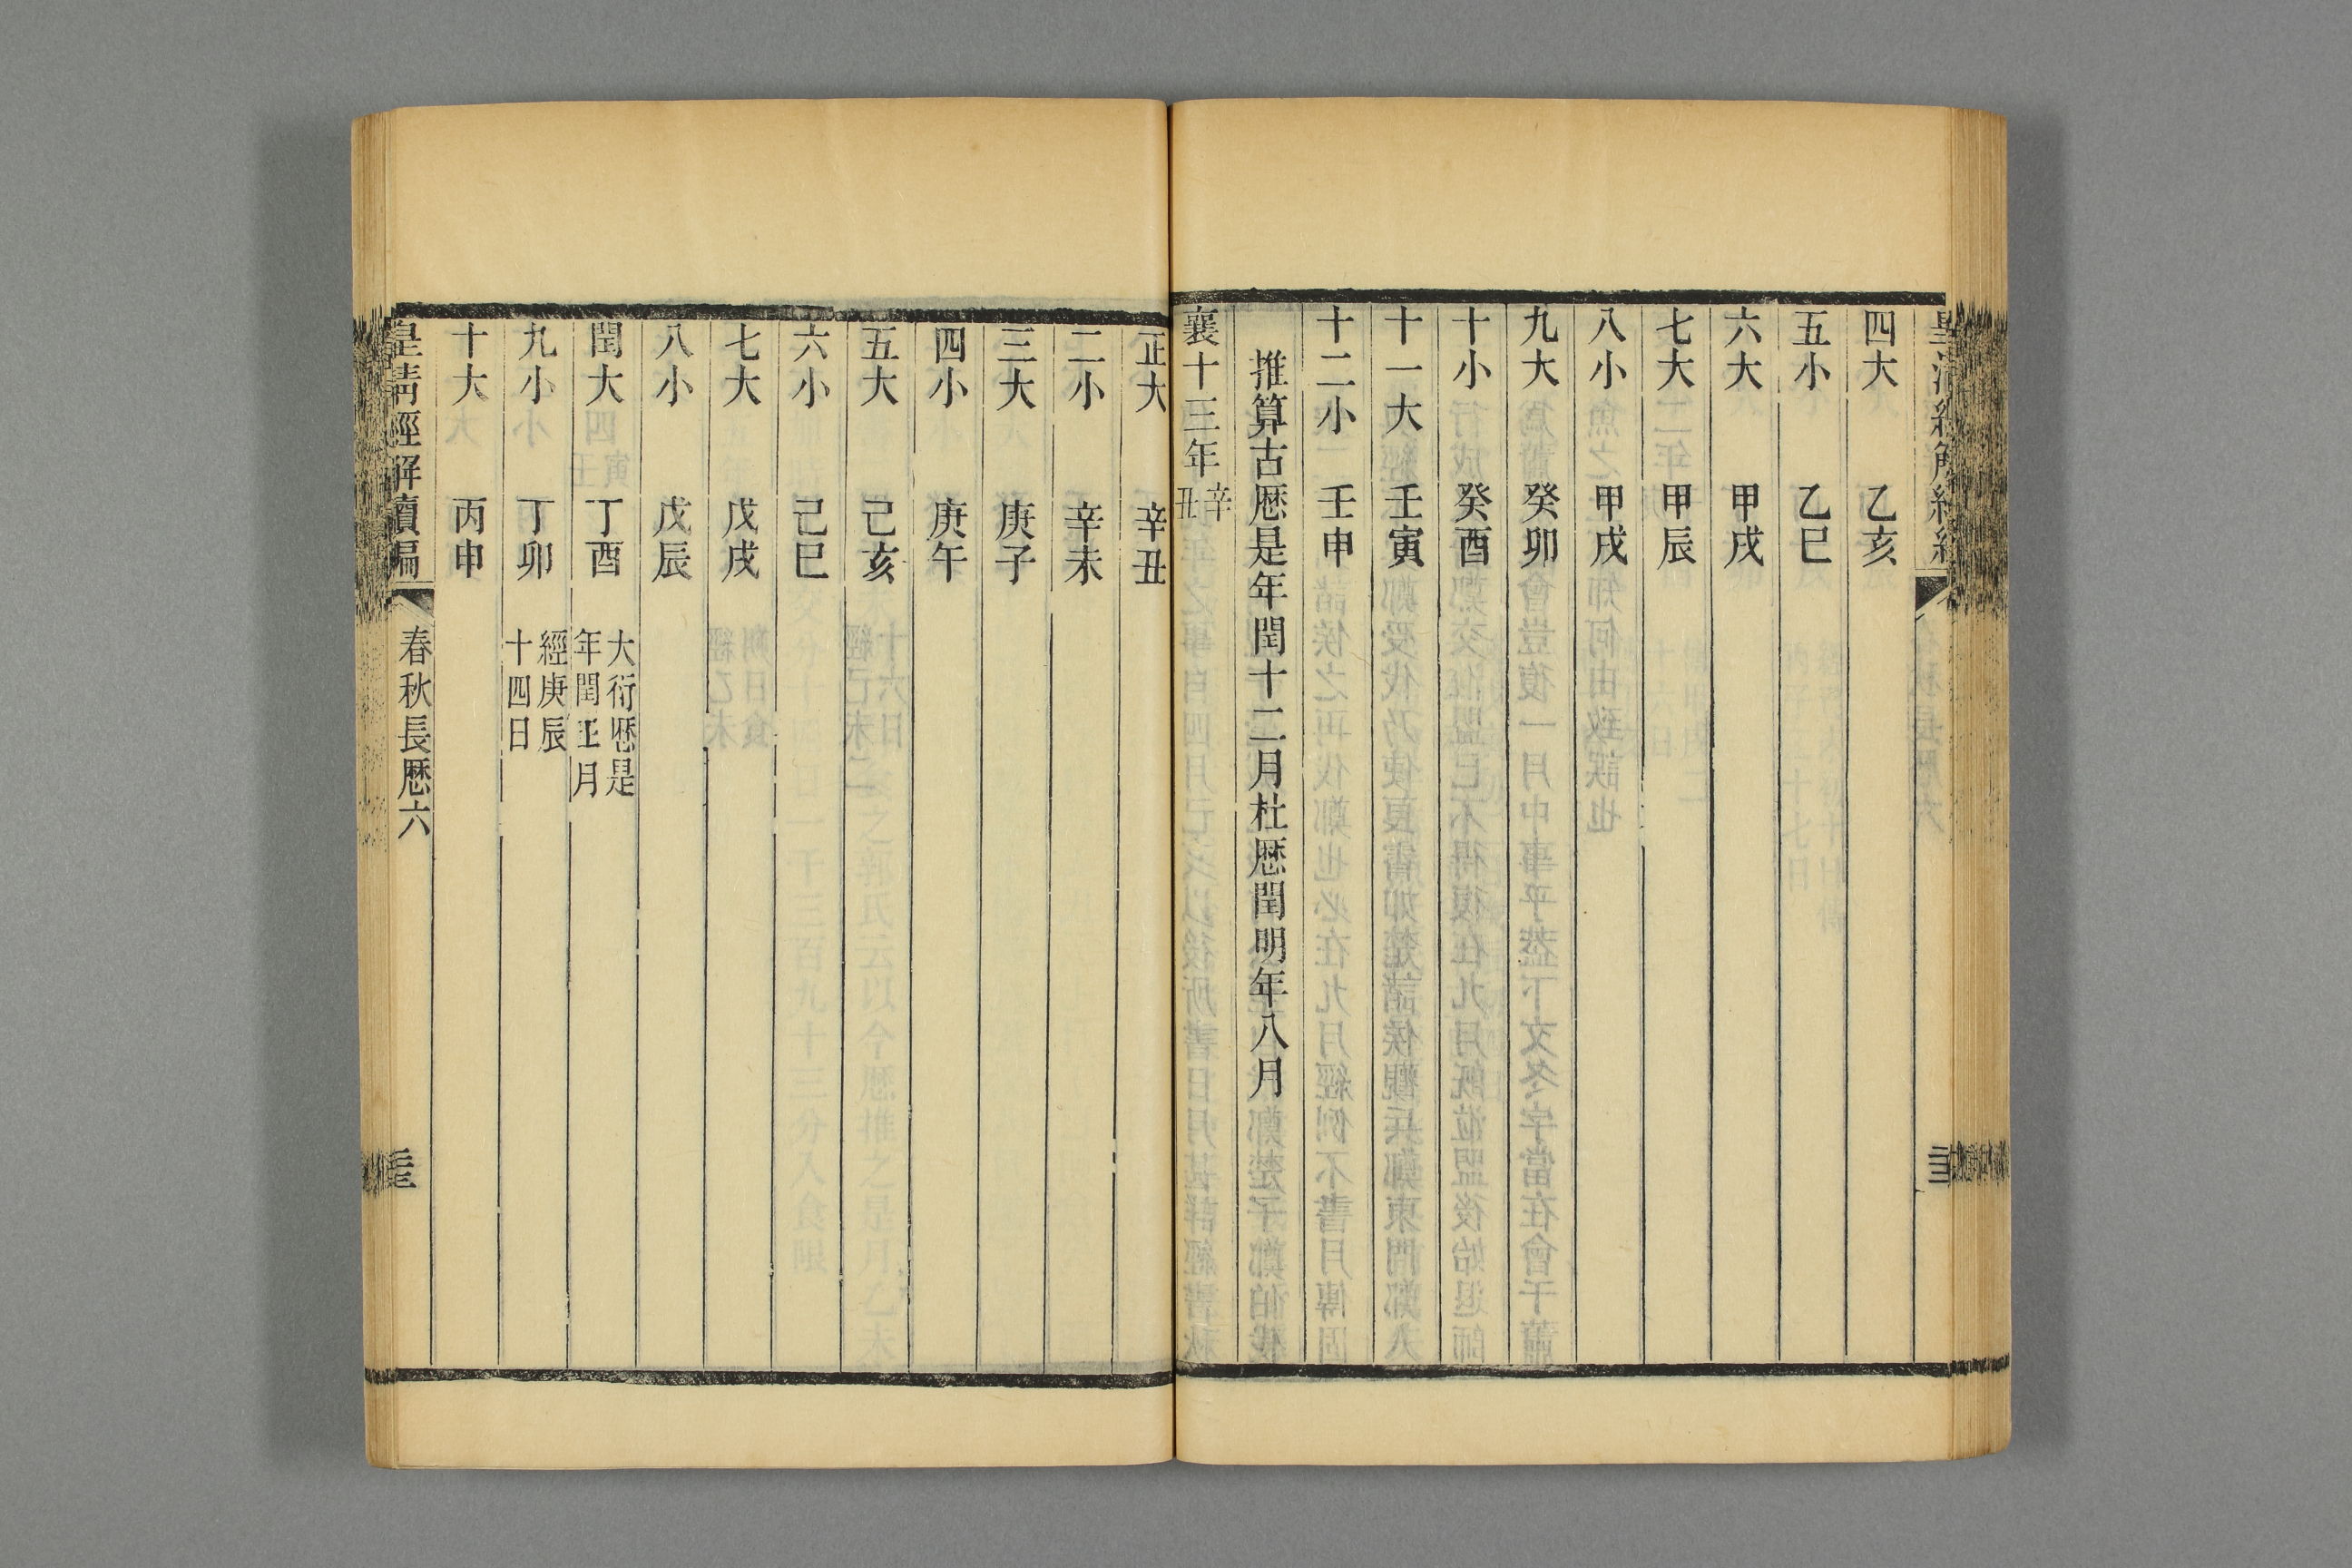 四大 乙亥
五小 乙巳
六大 甲戌
七大 甲辰
八小 甲戌
九大 癸卯
十小 癸酉
十一大 壬寅
十二小 壬申
推算古厯是年閏十二月杜厯閏明年八月
襄十三年辛丑
正大 辛丑
二小 辛未
三大 庚子
四小 庚午
五大 己亥
六小 己巳
七大 戊戌
八小 戊辰
閏大 丁酉 大衍厯是年閏正月
九小 丁卯 經庚辰十四日
十大 丙申
皇清經解續編 春秋長厯六